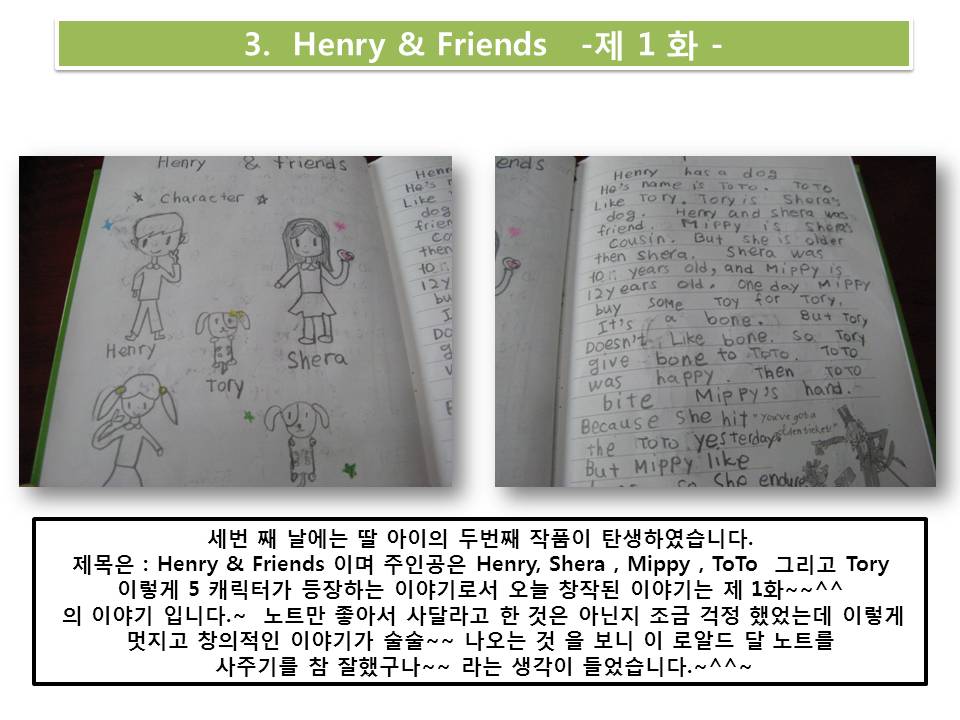 3. Henry & Friends -제 1 화 -
Henry & friends
★ Character ☆
Henry
Tory
Shera
Henry has a dog
He's name is ToTo. ToTo
Like Tory. Tory is Shera's
dog. Henry and shera was
friend. Mippy is Shera's
cousin. But she is older
then Shera. Shera was
10 years old, and Mippy is
12years old. one day Mippy
buy some Toy for Tory.
It's a bone. But Tory
Doesn't Like bone. so Tory
give bone to ToTo. ToTo
was happy. Then ToTo
bite Mippy's hand.
Because she hit
"You've got a
the ToTo yesterday.
But Mippy like
so she endure
세번 째 날에는 딸 아이의 두번째 작품이 탄생하였습니다.
제목은 : Henry & Friends 이며 주인공은 Henry, Shera , Mippy , ToTo 그리고 Tory
이렇게 5 캐릭터가 등장하는 이야기로서 오늘 창작된 이야기는 제 1화~~^^
의 이야기 입니다.~ 노트만 좋아서 사달라고 한 것은 아닌지 조금 걱정 했었는데 이렇게
멋지고 창의적인 이야기가 술술~~ 나오는 것 을 보니 이 로알드 달 노트를
사주기를 참 잘했구나~~ 라는 생각이 들었습니다.~^^~